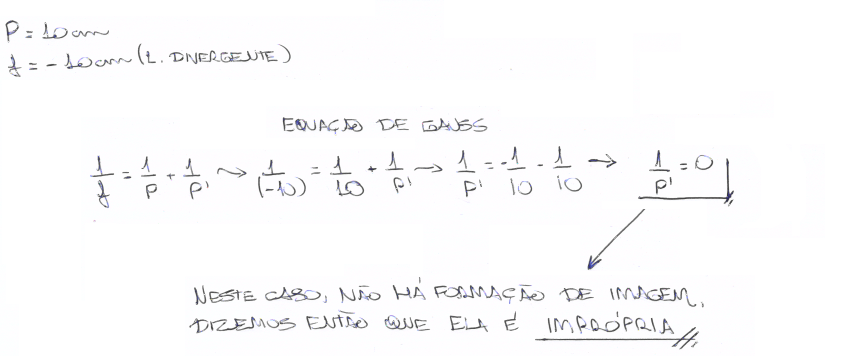 P = 10cm
f = -10cm (L. DIVERGENTE)
EQUAÇÃO DE GAUSS
1/f = 1/P + 1/P' → 1/(-10) = 1/10 + 1/P' → 1/P' = -1/10 - 1/10 → 1/P' = 0
NESTE CASO, NÃO HÁ FORMAÇÃO DE IMAGEM,
DIZEMOS ENTÃO QUE ELA É IMPRÓPRIA